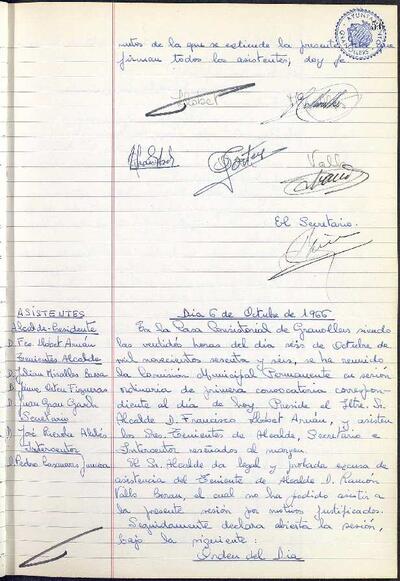 nutos de la que se extiende la presente que
firman todos los asistentes, doy fe.
Llobet
Valls
El Secretario.
ASISTENTES
Alcalde-Presidente
D. Fco Llobet Arnán
Tenientes Alcalde
D. Julian Miralles
D. Jaime Figueras
D. Juan Grau Garch
Secretario
D. José
Interventor
D. Pedro
Dia 6 de Octubre de 1966
En la Casa Consistorial de Granollers siendo
las veintidós horas del día seis de Octubre de
mil novecientos sesenta y seis, se ha reunido
la Comisión Municipal Permanente en sesión
ordinaria de primera convocatoria correspon-
diente al día de hoy. Preside el Iltre. Sr.
Alcalde D. Francisco Llobet Arnán, y asisten
los Sres. Tenientes de Alcalde, Secretario e
Interventor reseñados al margen.
El Sr. Alcalde da legal y probada excusa de
asistencia del Teniente de Alcalde D. Ramón
Valls, el cual no ha podido asistir a
la presente sesión por motivos justificados.
Seguidamente declara abierta la sesión,
bajo la siguiente:
Orden del Dia